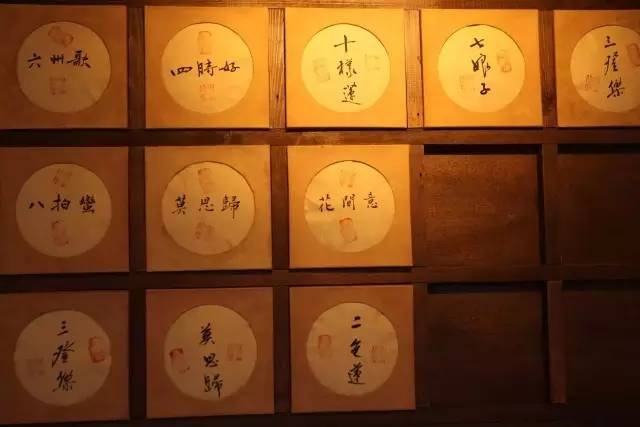 六州歌
四時好
十樣蓮
七娘子
三
八拍蠻
莫思歸
花間意
三
莫思歸
二色蓮